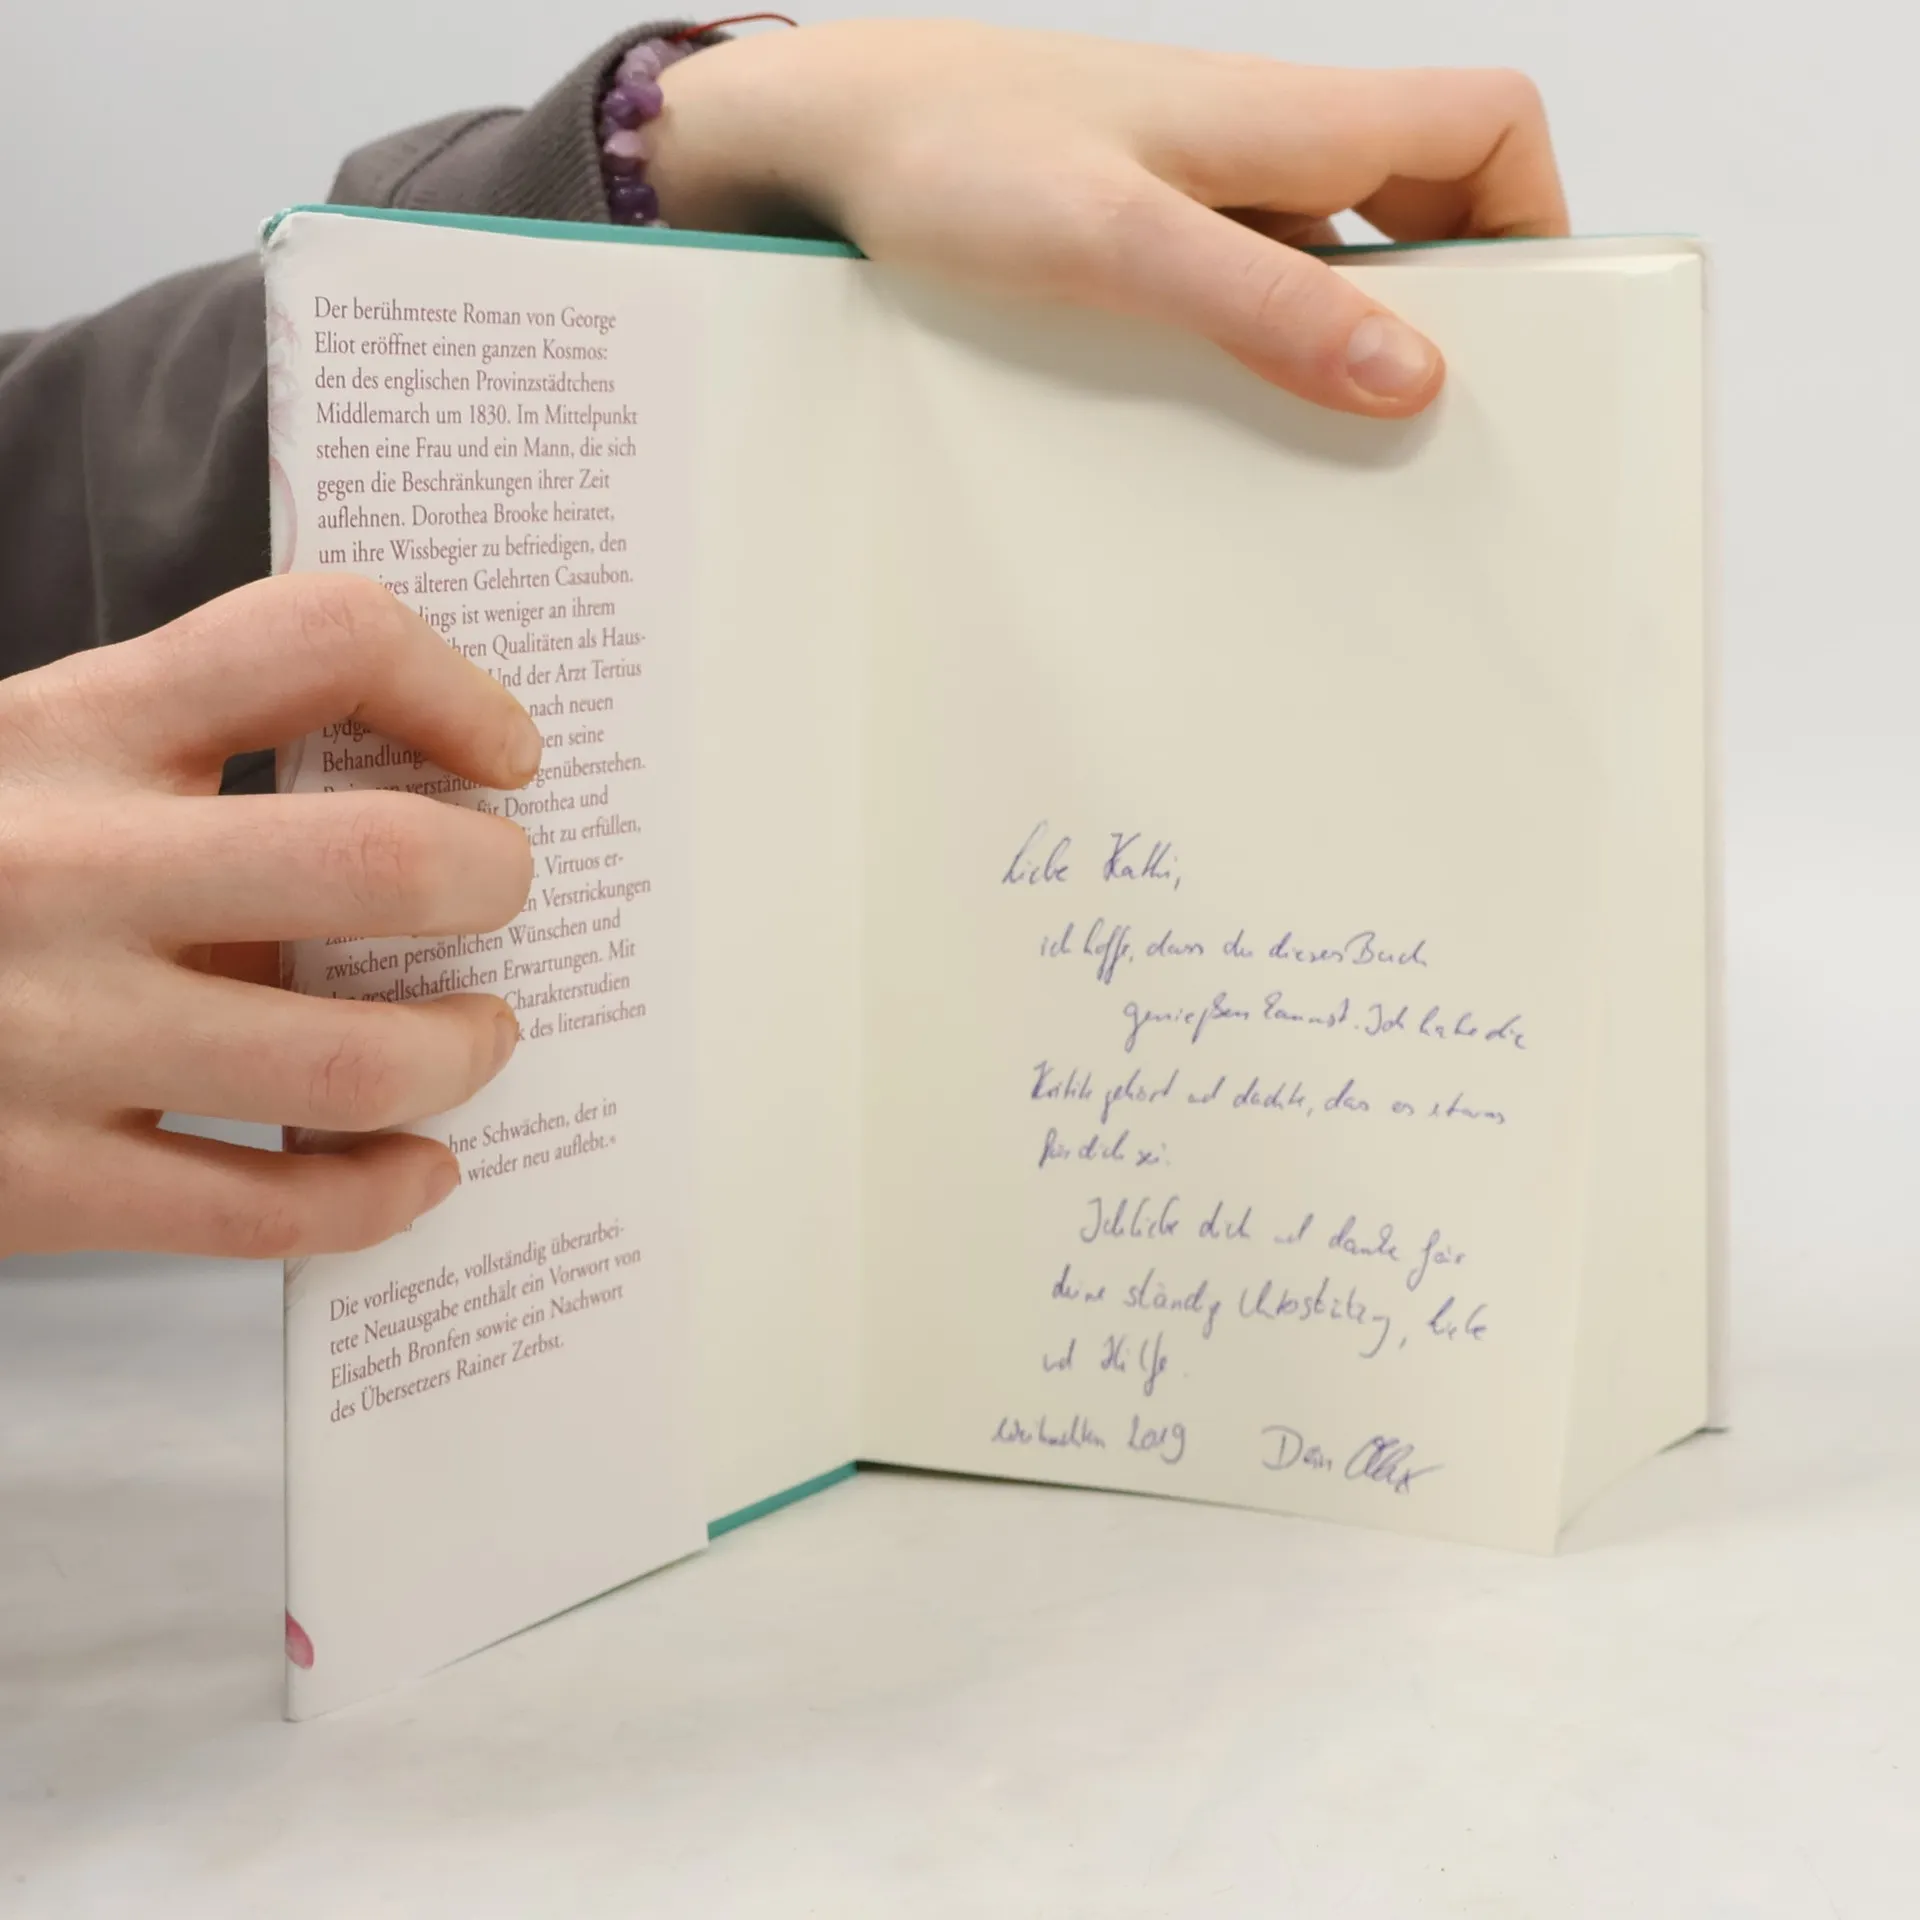 Der berühmteste Roman von George
Eliot eröffnet einen ganzen Kosmos:
den des englischen Provinzstädtchens
Middlemarch um 1830. Im Mittelpunkt
stehen eine Frau und ein Mann, die sich
gegen die Beschränkungen ihrer Zeit
auflehnen. Dorothea Brooke heiratet,
um ihre Wissbegier zu befriedigen, den
älteren Gelehrten Casaubon.
ist weniger an ihrem
Qualitäten als Haus-
Und der Arzt Tertius
nach neuen
seine
Behandlung
für Dorothea und
zu erfüllen,
Virtuos er-
Verstrickungen
zwischen persönlichen Wünschen und
gesellschaftlichen Erwartungen. Mit
Charakterstudien
des literarischen
Schwächen, der in
wieder neu auflebt.«
Die vorliegende, vollständig überarbei-
tete Neuausgabe enthält ein Vorwort von
Elisabeth Bronfen sowie ein Nachwort
des Übersetzers Rainer Zerbst.
Liebe Kathi,
ich hoffe, dass du dieses Buch
genießen kannst. Ich habe die
Kritik gehört und dachte, das es etwas
für dich sei.
Ich liebe dich und danke für
deine ständig Unterstützung, Liebe
und Hilfe.
Weihnachten 2019 Dein Alex